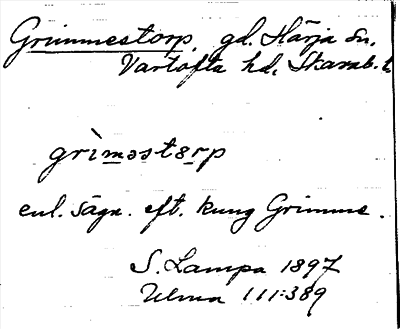 Grimmestorp, gd. Härja sn.
Vartofta hd, Skarab. l.
grìməstɵrp
enl. sägn. eft. kung Grimme.
S. Lampa 1897
Ulma 111:389